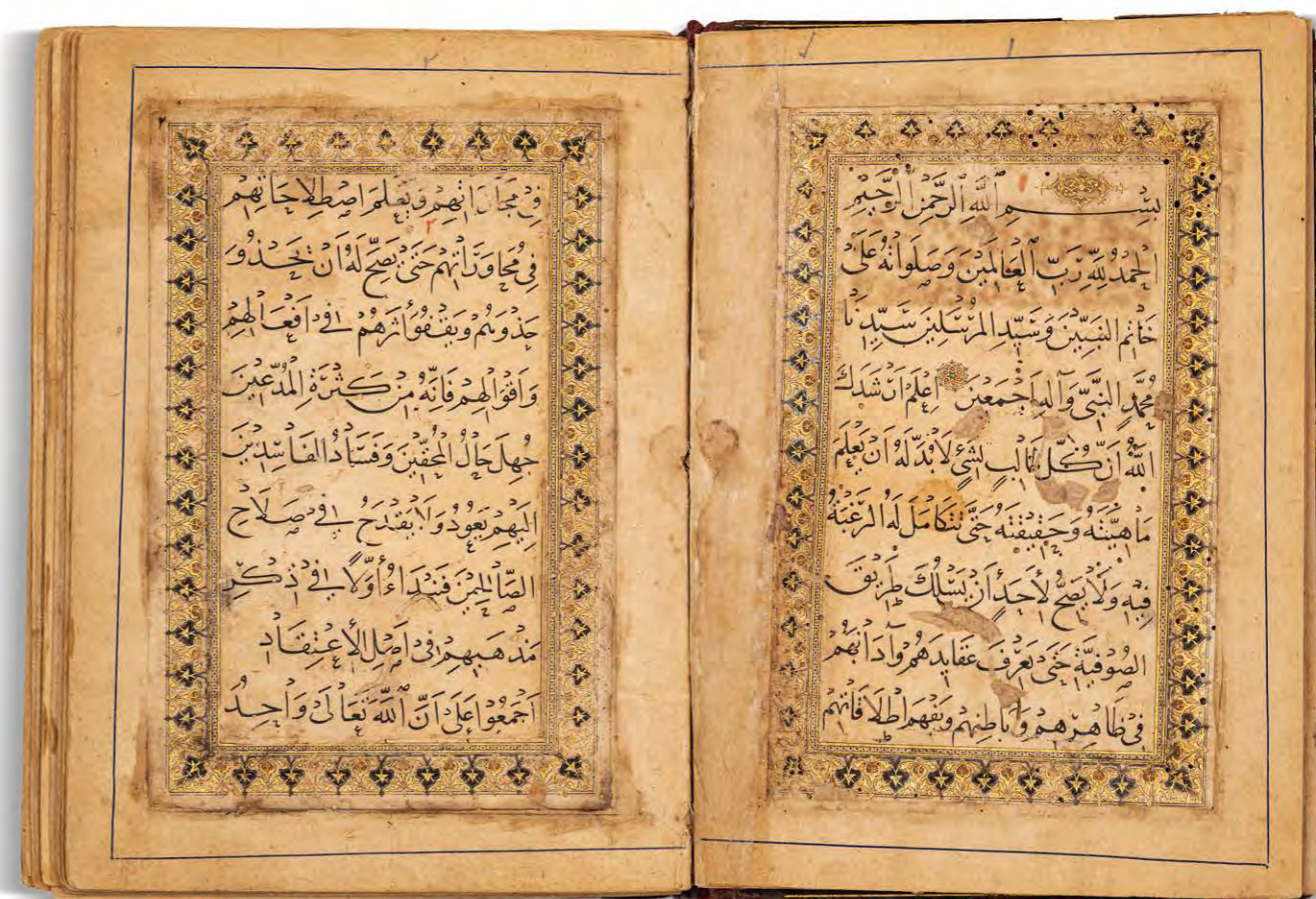 ١
بِسْمِ ٱللَّهِ ٱلرَّحْمٰنِ ٱلرَّحِيْمِ
اَلْحَمْدُ لِلّٰهِ رَبِّ ٱلْعَالَمِيْنَ وَصَلَوَاتُهُ عَلَىٰ
خَاتِمِ النَّبِيّيْنَ وَسَيِّدِ الْمُرْسَلِيْنَ سَيِّدِنَا
مُحَمَّدٍ النَّبِىِّ وَآلِهِ اَجْمَعِيْنَ اِعْلَمْ اَرْشَدَكَ
اللّٰهُ اَنَّ كُلَّ طَالِبٍ لِشَىْءٍ لَا بُدَّ لَهُ اَنْ يَعْلَمَ
مَاهِيَّتَهُ وَحَقِيْقَتَهُ حَتَّى تَتَكَامَلَ لَهُ الرَّغْبَةُ
فِيْهِ وَلَا يَصِحُّ لِأَحَدٍ اَنْ يَسْلُكَ طَرِيْقَ
الصُّوْفِيَّةِ حَتّٰى يَعْرِفَ عَقَايِدَهُمْ وَآدَابَهُمْ
فِىْ ظَاهِرِهِمْ وَبَاطِنِهِمْ وَيَفْهَمَ اِطْلَاقَاتِهِمْ
٢
فِىْ مُحَاوَرَاتِهِمْ حَتّٰى يَصِحَّ لَهُ اَنْ يَحْذُوَ
حَذْوَهُمْ وَيَقْفُوَ أَثَرَهُمْ فِىْ اَفْعَالِهِمْ
وَاَقْوَالِهِمْ فَاِنَّهُ مِنْ كَثْرَةِ الْمُدَّعِيْنَ
جُهِلَ حَالُ الْمُحَقِّيْنَ وَفَسَادُ الْفَاسِدِيْنَ
اِلَيْهِمْ يَعُوْدُ وَلَا يَقْدَحُ فِىْ صَلَاحِ
الصَّالِحِيْنَ فَنَبْدَاءُ أَوَّلًا فِىْ ذِكْرِ
مَذْهَبِهِمْ فِىْ اَصْلِ الْاِعْتِقَادِ
اَجْمَعُوْا عَلَىٰ اَنَّ ٱللّٰهَ تَعَالَىٰ وَاحِدٌ